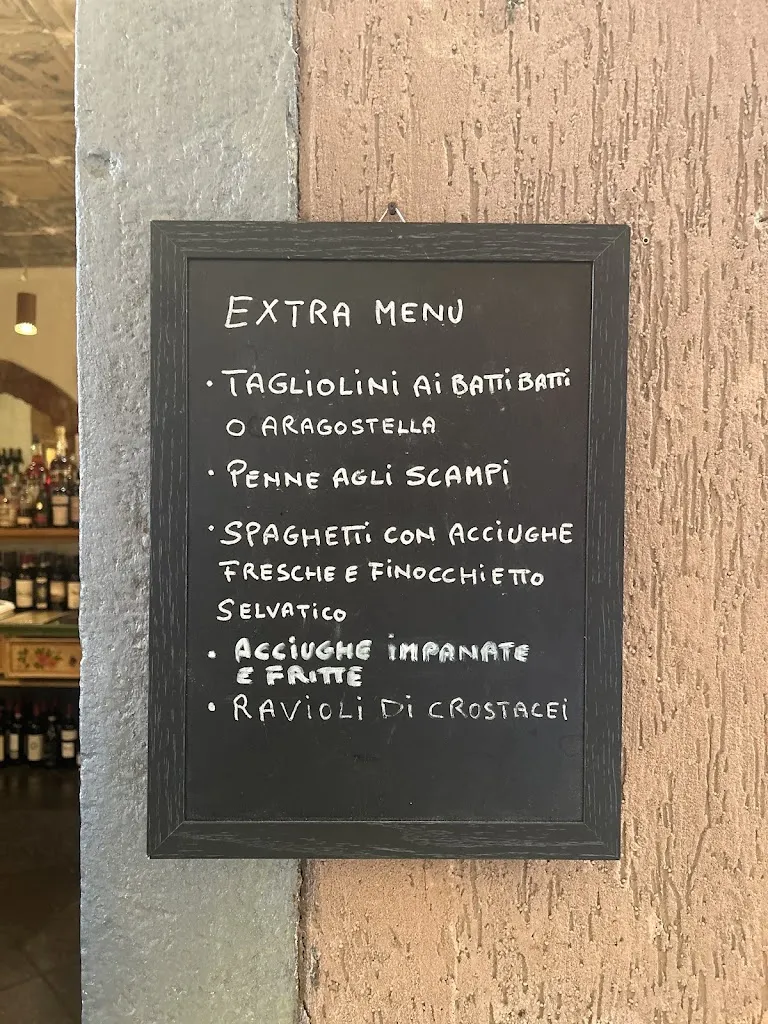 EXTRA MENU
· TAGLIOLINI Ai BATTi BATTi
O ARAGOSTELLA
· PENNE AGLi SCAMPi
· SPAGHETTi CON ACCiUGHE
FRESCHE E FiNOCCHiETTO
SELVATiCO
· ACCiUGHE iMPANATE
E FRiTTE
· RAViOLi Di CROSTACEi